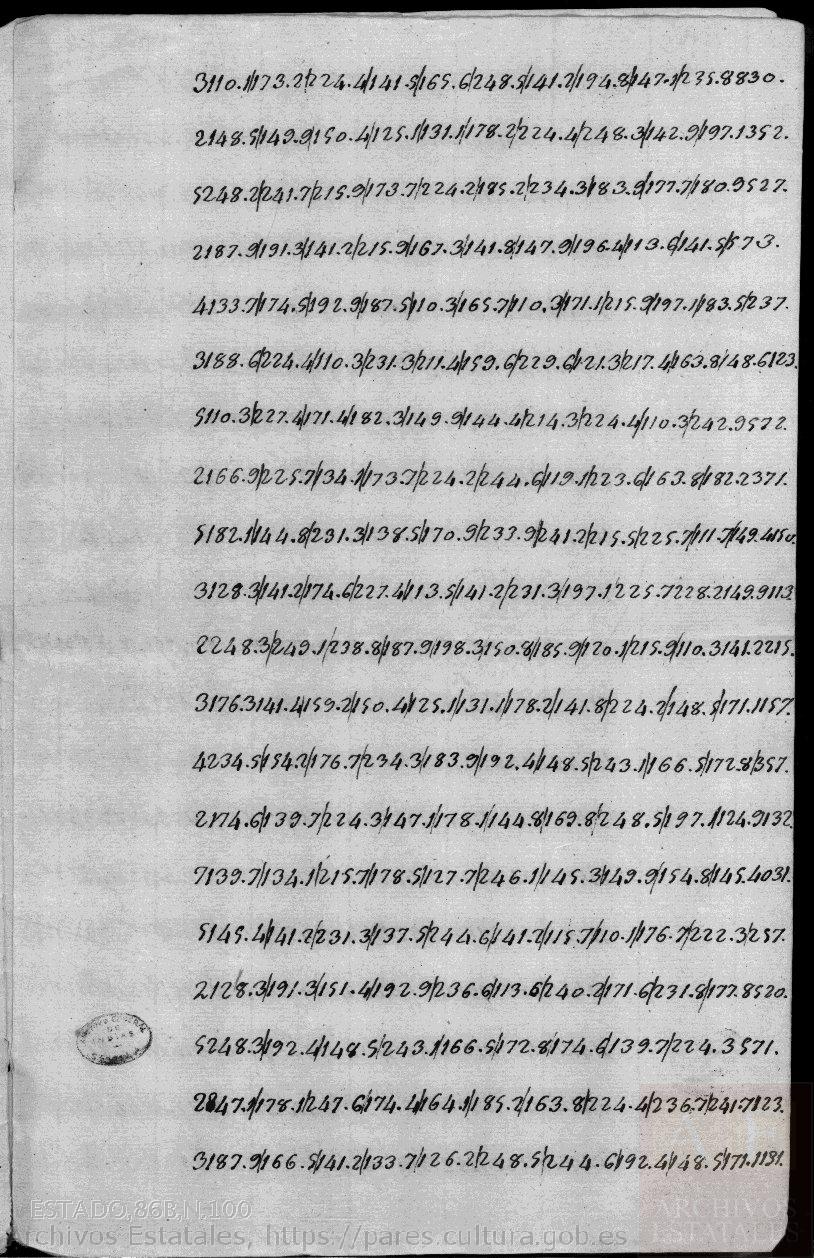 3110.1/173.2/224.4/141.5/165.6/248.5/141.2/194.8/147.1/235.8830.
2148.5/149.9/150.4/125.1/131.1/178.2/224.4/248.3/142.9/197.1352.
5248.2/241.7/215.9/173.7/224.2/185.2/234.3/183.9/177.7/180.9527.
2187.9/191.3/141.2/215.9/167.3/141.8/147.9/196.4/113.6/141.5/573.
4133.7/174.5/192.9/187.5/110.3/165.7/110.3/171.1/215.9/197.1/83.5/237.
3188.6/224.4/110.3/231.3/211.4/159.6/229.6/121.3/217.4/163.8/148.6123.
5110.3/227.4/171.4/182.3/149.9/144.4/214.3/224.4/110.3/242.9572.
2166.9/225.7/134.1/173.7/224.2/244.6/119.1/223.6/163.8/182.2371.
5182.1/144.8/231.3/138.5/170.9/233.9/241.2/215.5/225.7/111.7/149.4150.
3128.3/141.2/174.6/227.4/113.5/141.2/231.3/197.1225.7228.2149.9113.
2248.3/249.1/238.8/187.9/198.3/150.8/185.9/120.1/215.9/110.3141.2215.
3176.3141.4/159.2/150.4/125.1/131.1/178.2/141.8/224.2/148.5/171.1157.
4234.5/154.2/176.7/234.3/183.9/192.4/148.5/243.1/166.5/172.8/357.
2174.6/139.7/224.3/147.1/178.1/144.8/169.8/248.5/197.1/124.9132.
7139.7/134.1/215.7/178.5/127.7/246.1/145.3/149.9/154.8/145.4031.
5145.4/141.2/231.3/137.5/244.6/141.2/115.7/110.1/176.7/222.3/257.
2128.3/191.3/151.4/192.9/236.6/113.6/240.2/171.6/231.8/177.8520.
5248.3/192.4/148.5/243.1/166.5/172.8/174.6/139.7/224.3571.
2147.1/178.1/247.6/174.4/164.1/185.2/163.8/224.4/236.7/241.7123.
3187.9/166.5/141.2/133.7/126.2/248.5/244.6/192.4/148.5/171.1131.
ESTADO,86B,N.100
Archivos Estatales, https://pares.cultura.gob.es
ARCHIVOS
ESTATALES